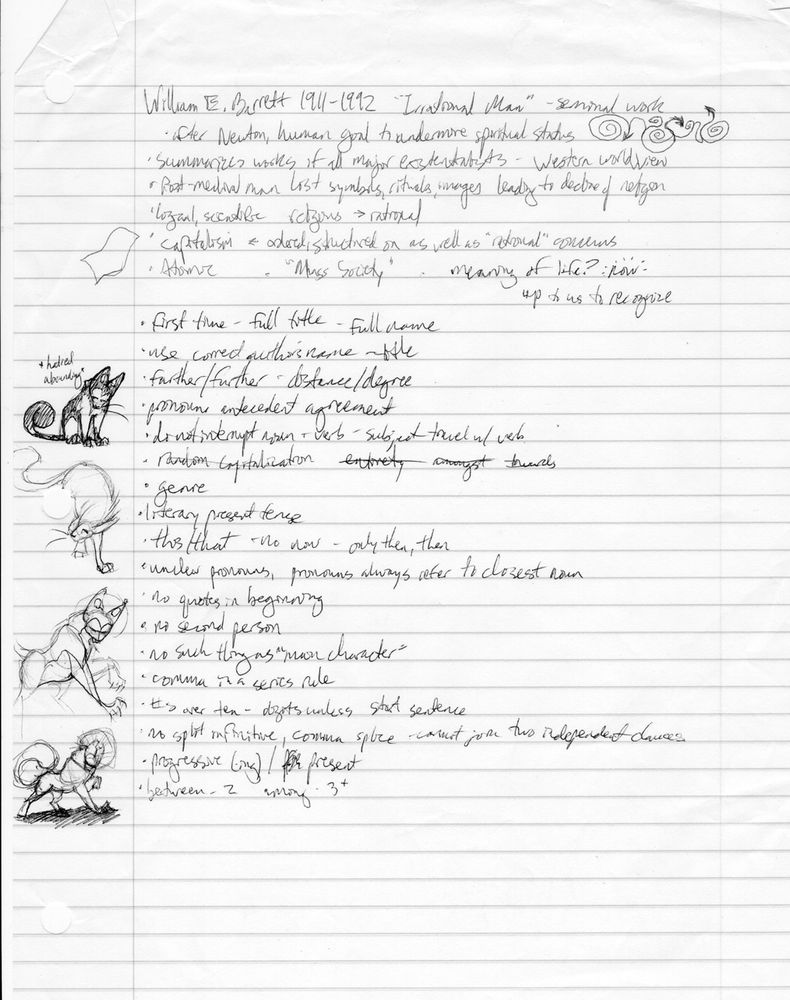 William E. Barrett 1911-1992 "Irrational Man" - seminal work
· after Newton, human goal to undermine spiritual status
· Summarizes works of all major existentialists - Western worldview
· Post-medieval man lost symbols, rituals, images leading to decline of religion
· logical, scientific religious → rational
· capitalism ordered, structured on as well as "rational" concerns
· Atomic - "Mass Society" - meaning of life? :now:
up to us to recognize
· First time - full title - Full name
· use correct author's name - title
* hatred abounding *
· farther/further - distance/degree
· pronoun antecedent agreement
· do not interrupt noun + verb - subject travel w/ verb
· random capitalization entirely amongst towards
· genre
· literary present tense
· this/that - no now - only then, then
· unclear pronouns, pronouns always refer to closest noun
· no quotes in beginning
· no second person
· no such thing as "main character"
· comma in a series rule
· #s over ten - digits unless start sentence
· no split infinitive, comma splice - cannot join two independent clauses
· progressive (ing) / present
· between - 2 among - 3+